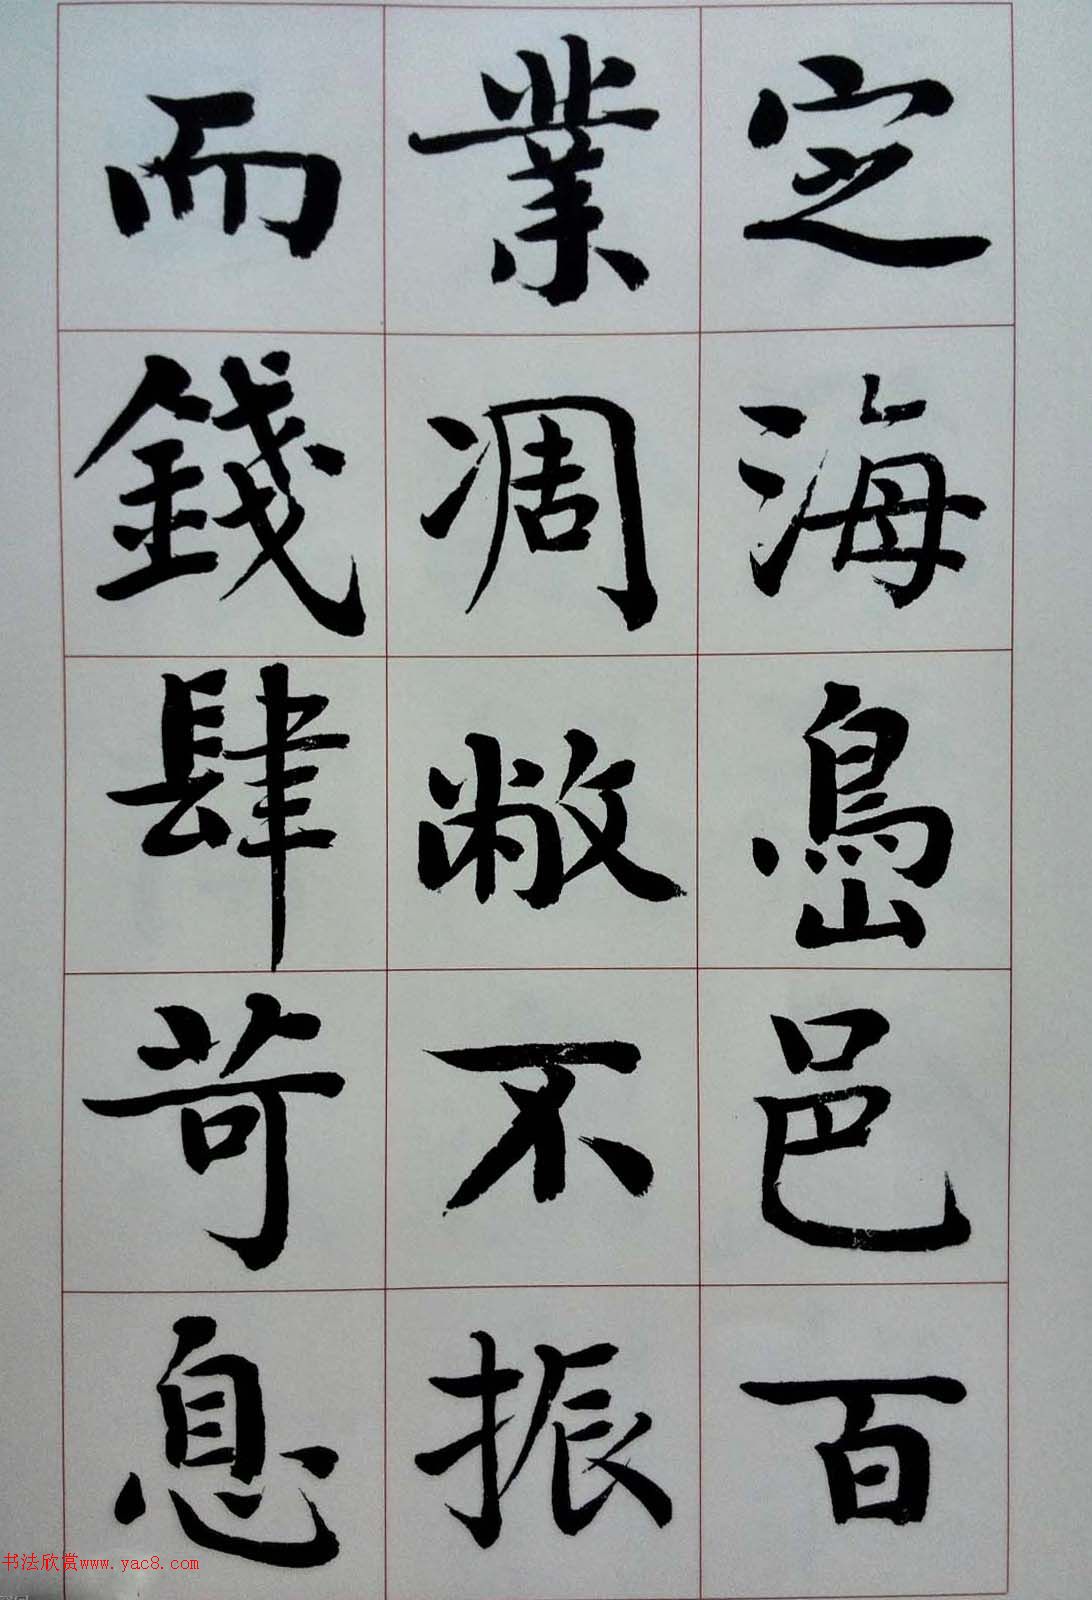 定海島邑百
業凋敝不振
而錢肆苛息
书法欣赏www.yac8.com